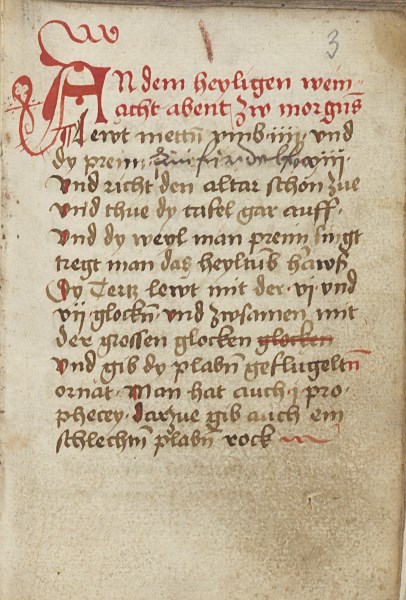 3
An dem heyligen wein
acht abent zw morgn̄s
Lewt mettn̄ vmb iiii · vnd
dy preim
vnd richt den altar schon zue
vnd thue dy tafel gar auff ·
vnd dy weyl man preim singt
tregt man das heyltub̄ herawß
Dy Tertz lewt mit der · vi · vnd
vii glockn̄ · vnd zwsamen mit
der grossen glocken glocken
vnd gib dy plabn̄ geflugeltn̄
ornat · Man hat auch · i · pro-
phecey · darzue gib auch ein
schlechtn̄ plabn̄ rock